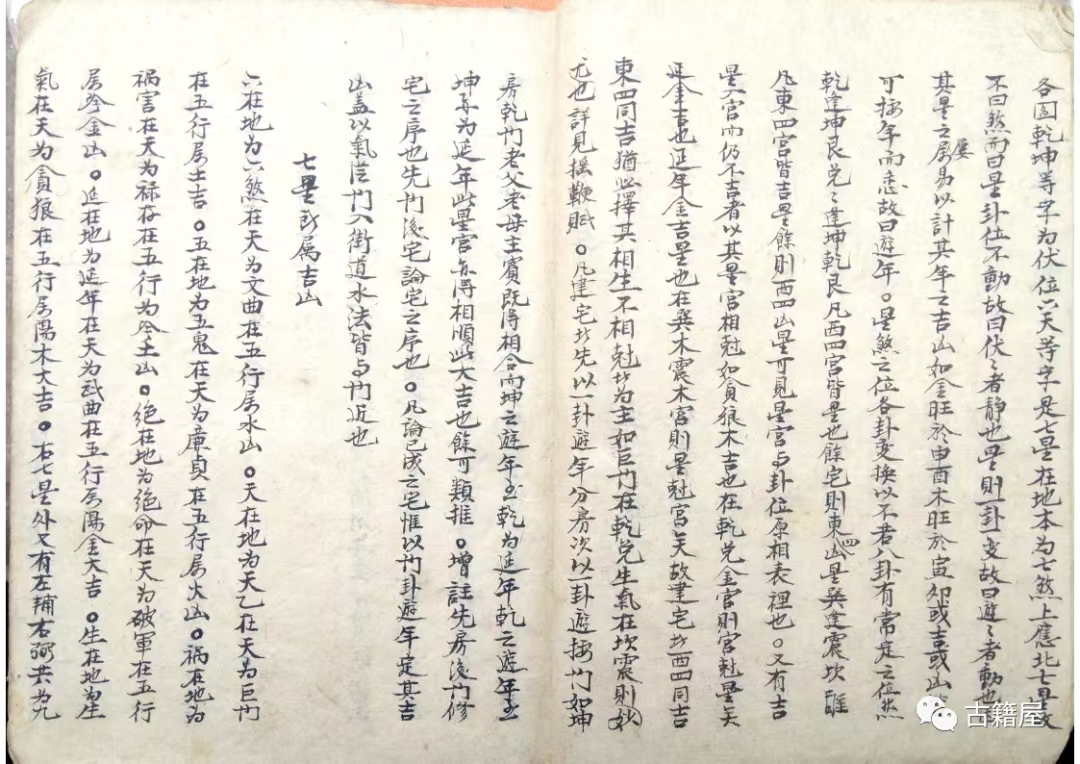 各图乾坤等字为伏位六天等字是七星在地本为七煞上應北七星故
不曰煞而曰星卦位不動故曰伏〻者静也星則一卦一变故曰遊〻者動也
其星之屬易以計其年之吉凶如金旺於申酉木旺於寅卯或吉或凶皆
可按年而恋故曰遊年。星煞之位各卦变换以不若八卦有常定之位然
乾逢坤艮兑〻逢坤乾艮凡西四宫皆星也餘宅則東四凶星巽逢震坎離
凡東四宫皆吉星餘則西四凶星可見星宫与卦位原相表裡也。又有吉
星入宫而仍不吉者以其星宫相尅如貪狼木吉也在乾兑金宫則宫尅星矣
延年吉也延年金吉星也在巽木震木宫則星尅宫矣故建宅者西四同吉
東四同吉猶必擇其相生不相尅者为主如巨门在乾兑生氣在坎震則妙
尤也詳見摇鞭賦。凡建宅者先以一卦遊年分房次以一卦遊按门如坤
房乾门老父老母主賓既得相合而坤之遊年至乾为延年乾之遊年至
坤亦为延年此星宫亦得相順此大吉也餘可類推。增註先房後门修
宅之序也先门後宅論宅之序也。凡論已成之宅惟以门卦遊年定其吉
凶盖以氣從门入街道水法皆与门近也
七星所属吉凶
六在地为六煞在天为文曲在五行属水凶。天在地为天乙在天为巨门
在五行属土吉。五在地为五鬼在天为廉貞在五行属火凶。祸在地为
祸害在天为禄存在五行为陰土凶。绝在地为绝命在天为破軍在五行
属陰金凶。延在地为延年在天为武曲在五行属陽金大吉。生在地为生
氣在天为貪狼在五行属陽木大吉。右七星外又有左辅右弼共为九
古籍屋